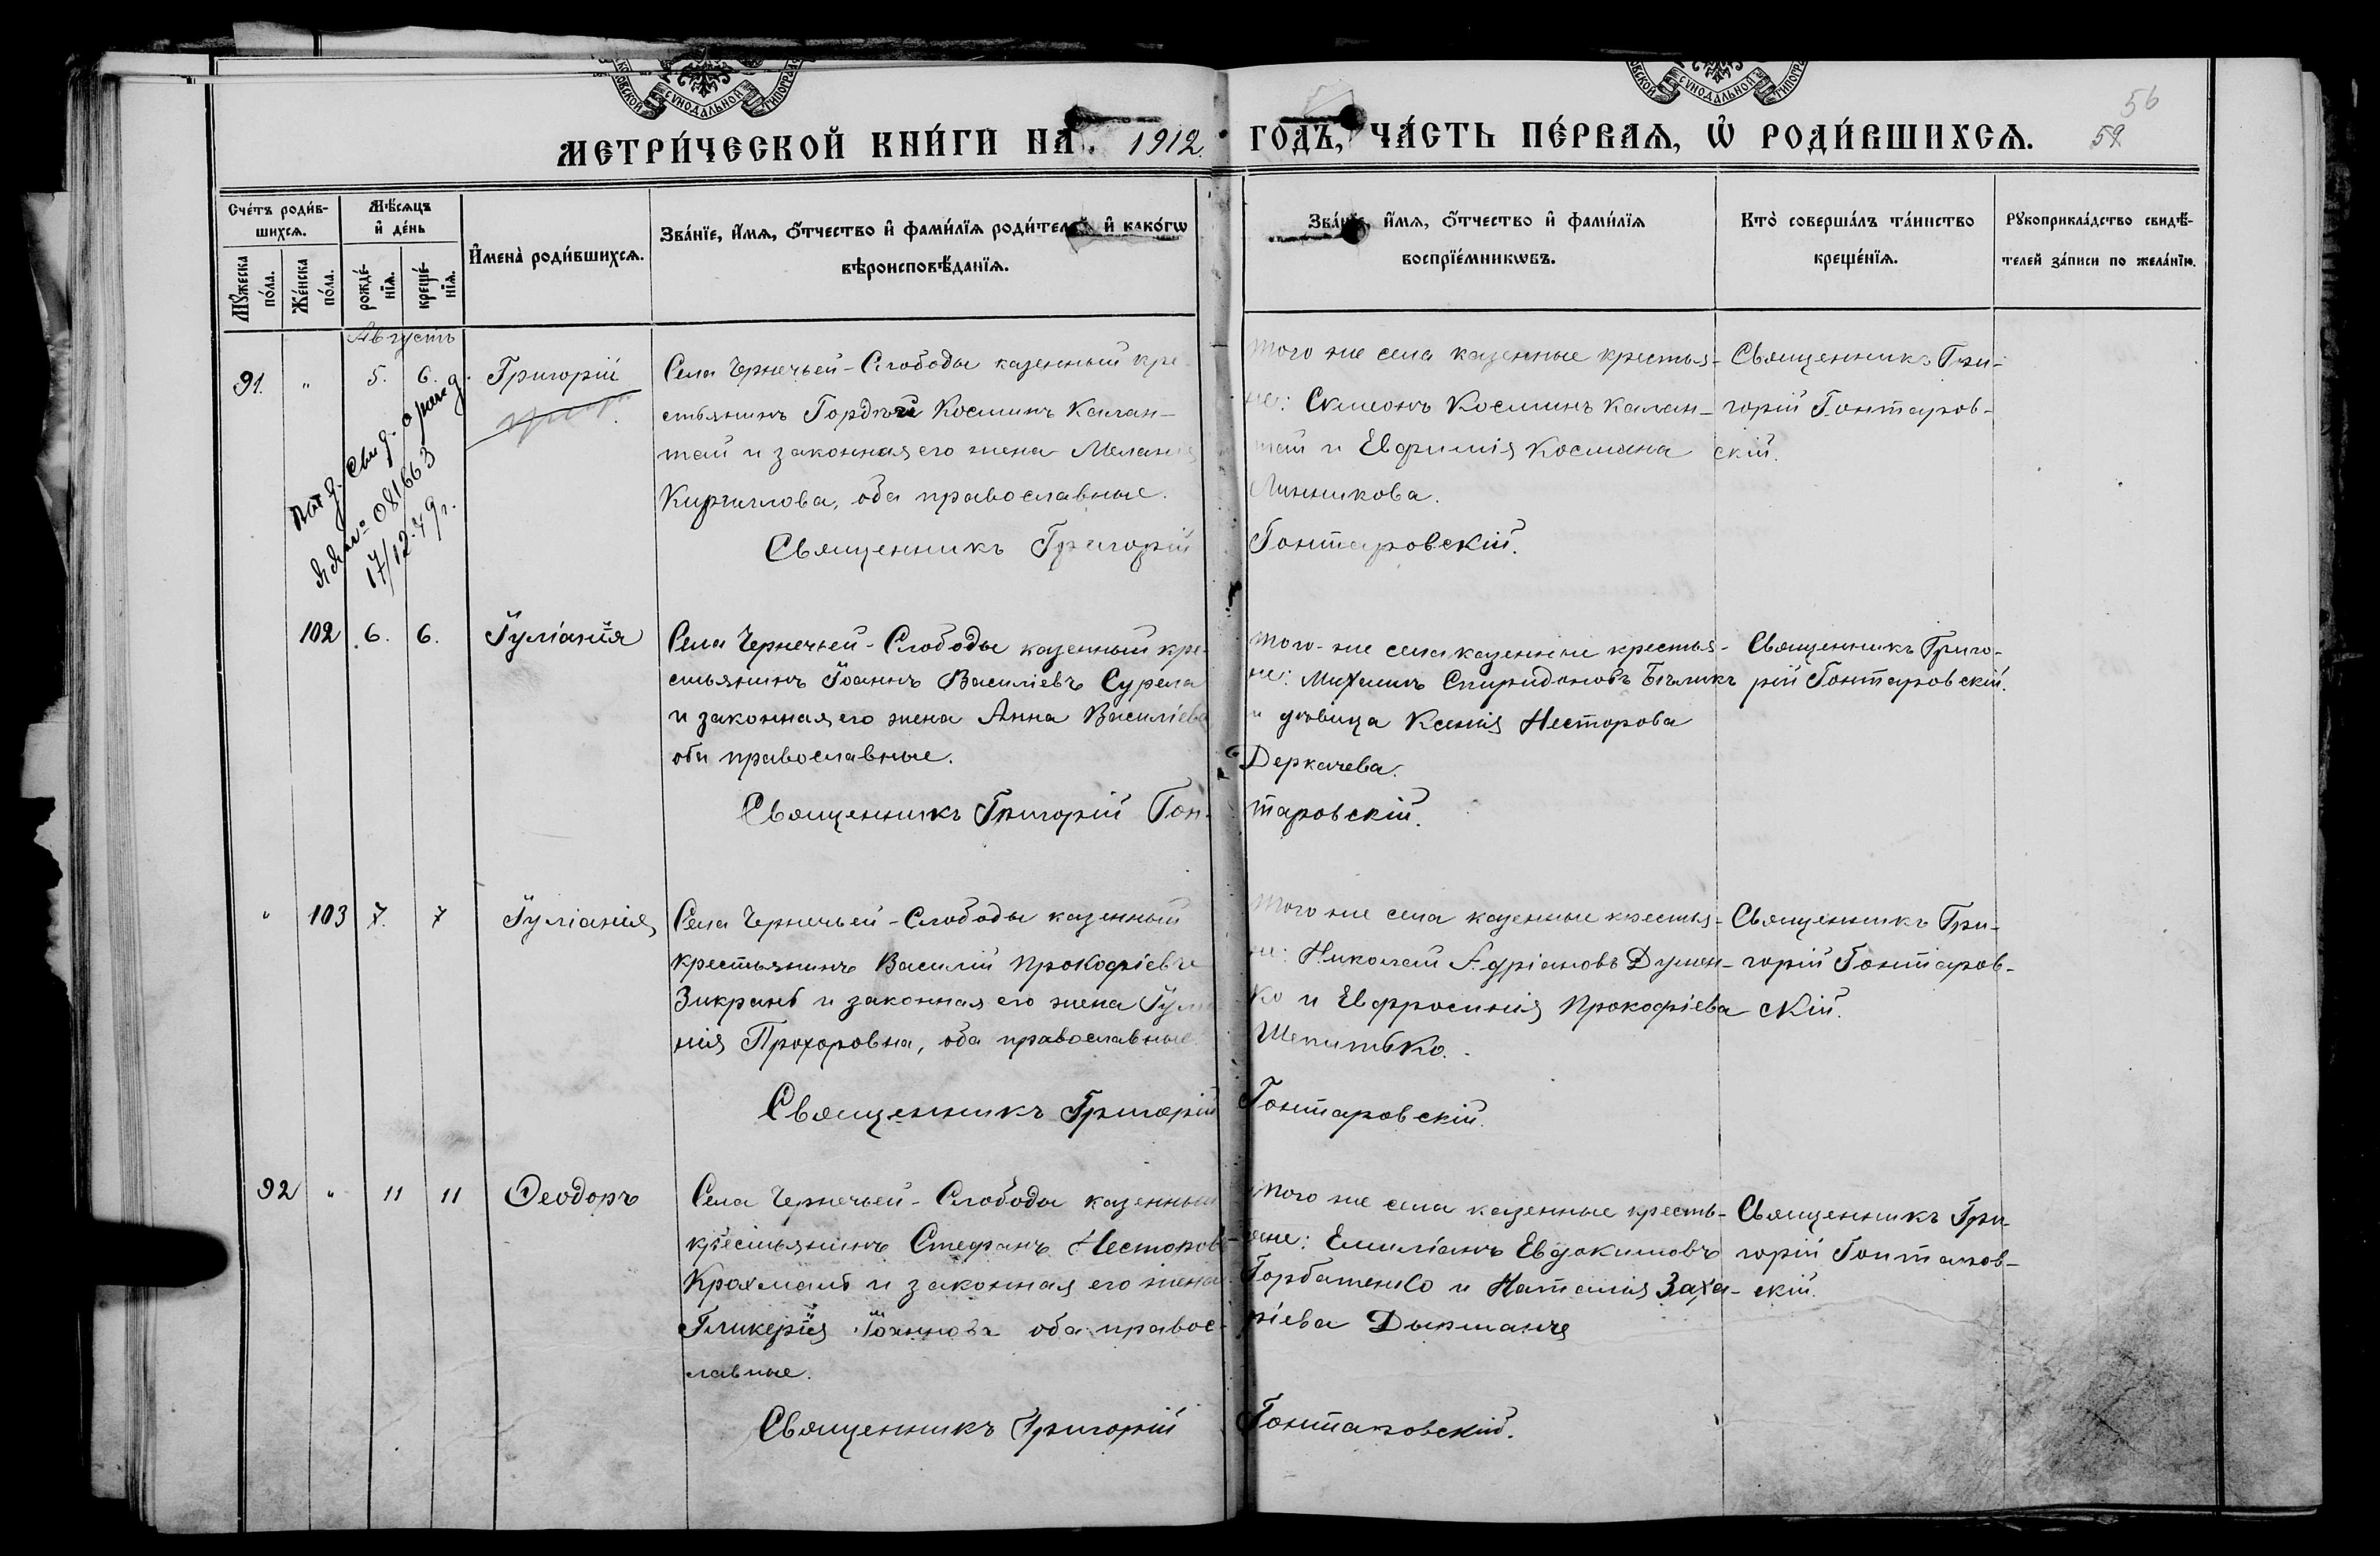 МЕТРИ́ЧЕСКОЙ КНИ́ГИ НА 1912 ГОДЪ, ЧА́СТЬ ПЕ́РВАѦ, Ѡ҆ РОДИ́ВШИХСѦ.
56
52
СѴНОДАЛЬНОЙ
СѴНОДАЛЬНОЙ
Сче́тъ роди́в-
шихсѧ.
Мѣ́сѧцъ
и҆ де́нь
Мꙋ́жеска по́ла.
Же́нска по́ла.
рожде́-
нїѧ.
креще́-
нїѧ.
И҆мена̀ роди́вшихсѧ.
Зва́нїе, и҆́мѧ, ѻ҆́тчество и҆ фами́лїѧ роди́телей и҆ како́гѡ
вѣроисповѣ́данїѧ.
Зва́нїе, и҆́мѧ, ѻ҆́тчество и҆ фами́лїѧ
воспрїе́мникѡвъ.
Кто̀ соверша́лъ та́инство
креще́нїѧ.
Рꙋкоприкла́дство свидѣ́-
телей за́писи по жела́нїю.
Августъ
91. " 5. 6. Григорій
Села Чернечьей-Слободы казенный кре-
стьянинъ Гордѣй Косминъ Калан-
тай и законная его жена Меланія
Кириллова, оба православные.
Священникъ Григорій Гонтаровскій.
того же села казенные крестья-
не: Симеонъ Косминъ Калан-
тай и Евфимія Космина
Линникова.
Священникъ Гри-
горій Гонтаров-
скій.
свид. о рожд.
№ 081663
17/12-49г.
102 6. 6. Іуліанія
Села Чернечьей-Слободы казенный кре-
стьянинъ Іоаннъ Василіевъ Сурела
и законная его жена Анна Василіева
оба православные.
Священникъ Григорій Гон-таровскій.
того-же села казенные крестья-
не: Михаилъ Спиридоновъ Бѣликъ
и удовица Ксенія Несторова
Деркачева.
Священникъ Григо-
рій Гонтаровскій.
" 103 7. 7 Іуліанія
Села Чернечьей-Слободы казенный
крестьянинъ Василій Прокофіевъ
Зикрань и законная его жена Іуліа
нія Прохоровна, оба православные
Священникъ Григорій Гонтаровскій.
того же села казенные крестья-
не: Николай Адріановъ Думен-
ко и Евфросинія Прокофіева
Шепитько.
Священникъ Гри-
горій Гонтаров-
скій.
92 " 11 11 Ѳеодоръ
Села Чернечьей-Слободы казенный
крестьянинъ Стефанъ Несторовъ
Крахмаль и законная его жена
Гликерія Іоаннова оба правос-
лавные.
Священникъ Григорій Гонтаровскій.
того же села казенные кресть-
яне: Емиліанъ Евдокимовъ
Горбатенко и Наталія Заха-
ріева Дырманча
Священникъ Гри-
горій Гонтаров-
скій.